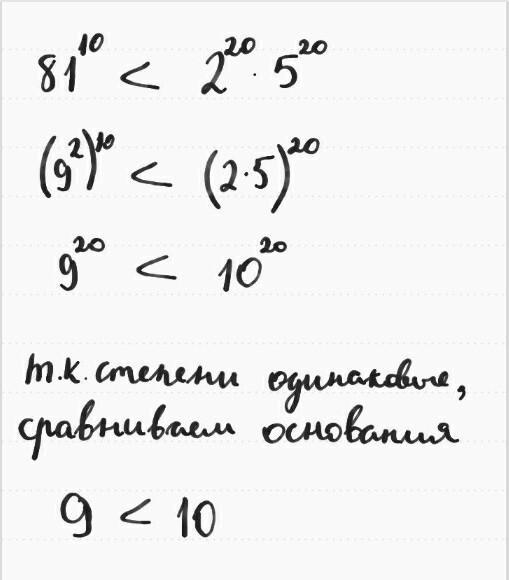 81¹⁰ < 2²⁰ · 5²⁰
(9²)¹⁰ < (2·5)²⁰
9²⁰ < 10²⁰
т.к. степени одинаковые,
сравниваем основания
9 < 10